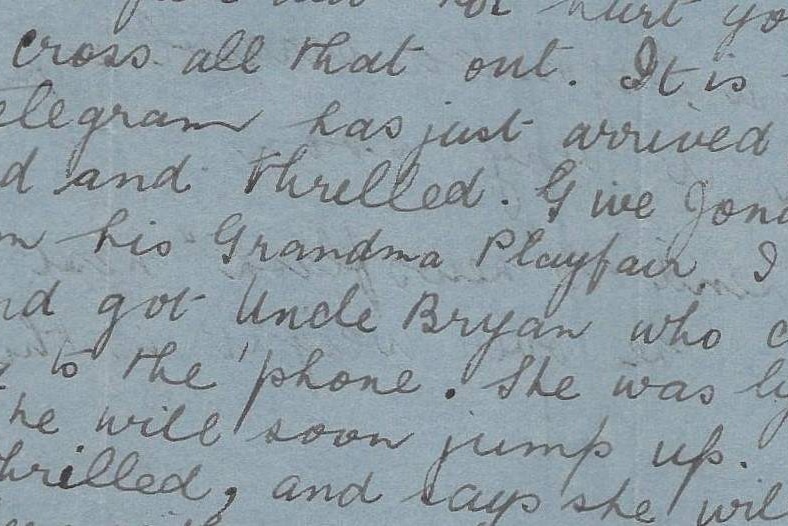 not hurt yo
cross all that out. It is
elegram has just arrived
d and thrilled. Give Jona
m his Grandma Playfair. I
nd got Uncle Bryan who c
to the 'phone. She was ly
he will soon jump up.
hrilled, and says she wil